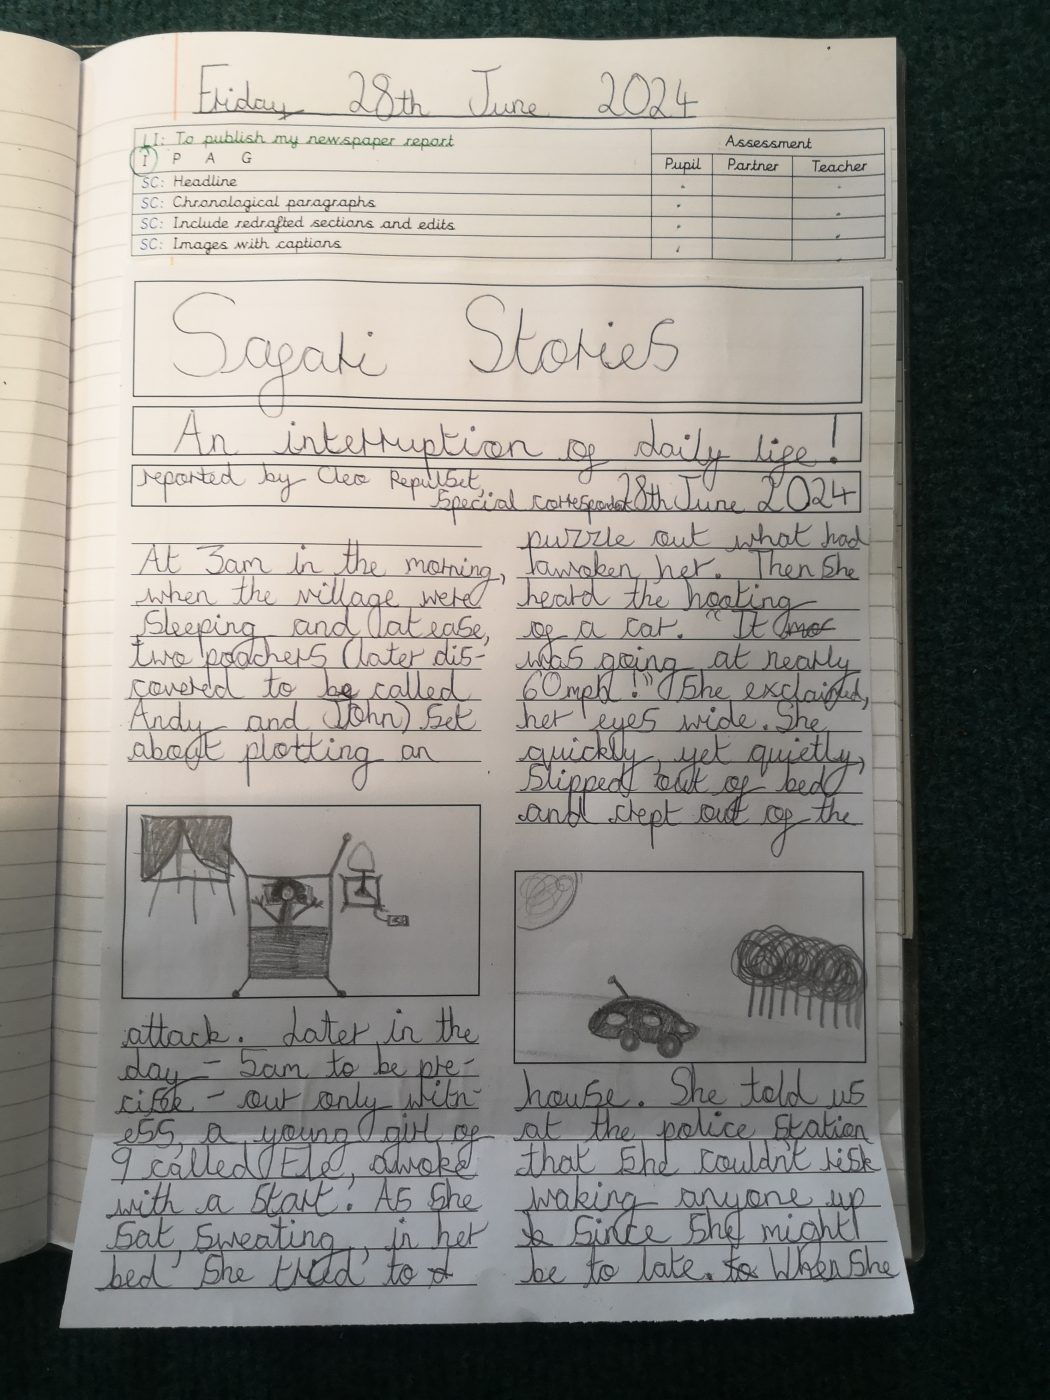 Friday 28th June 2024
LI: To publish my newspaper report
I P A G
Assessment
Pupil Partner Teacher
SC: Headline
SC: Chronological paragraphs
SC: Include redrafted sections and edits
SC: Images with captions
Sagari Stories
An interruption of daily life!
reported by Cleo
Special correspondent 28th June 2024
At 3am in the morning,
when the village were
sleeping and at ease,
two poachers (later dis-
covered to be called
Andy and John) set
about plotting an
attack. Later in the
day - 5am to be pre-
cise - our only witn-
ess, a young girl of
9 called Ele, awoke
with a start. As she
sat, sweating, in her
bed she tried to
puzzle out what had
awoken her. Then she
heard the hooting
of a car. "It
was going at nearly
60mph!" She exclaimed,
her eyes wide. She
quickly, yet quietly,
slipped out of bed
and crept out of the
house. She told us
at the police station
that she couldn't risk
waking anyone up
since she might
be to late. When she